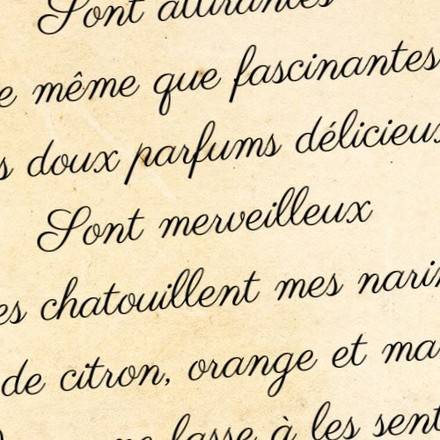 Sont attirantes
même que fascinantes
doux parfums délicieux
Sont merveilleux
chatouillent mes
de citron, orange et
à les